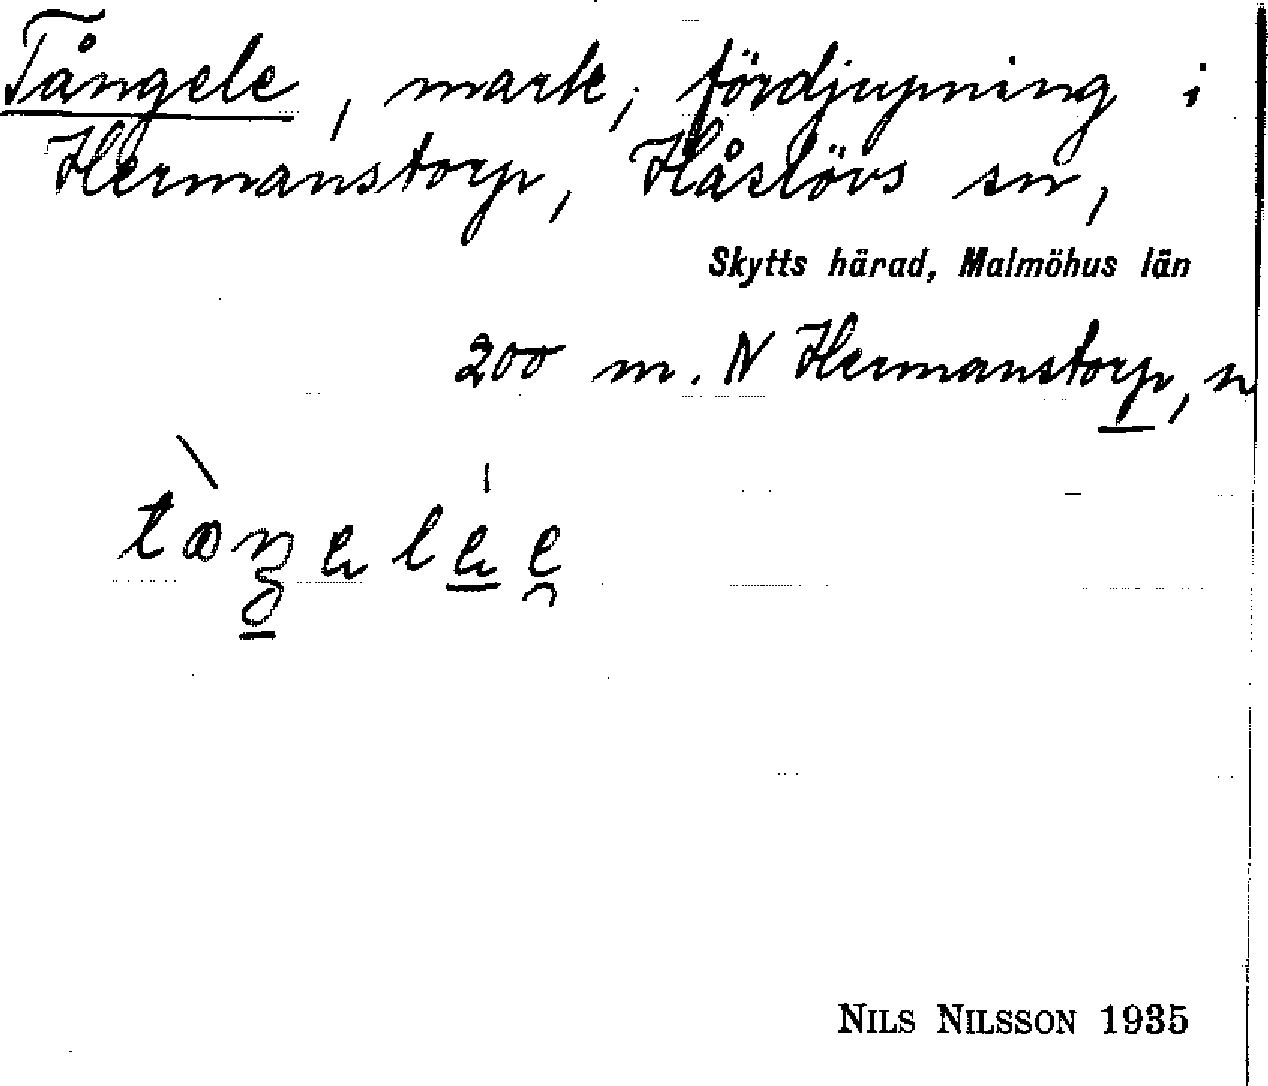 Tångele, mark, fördjupning i
Hermanstorp, Håslövs sn,
Skytts härad, Malmöhus län
200 m. N Hermanstorp, n
NILS NILSSON 1935